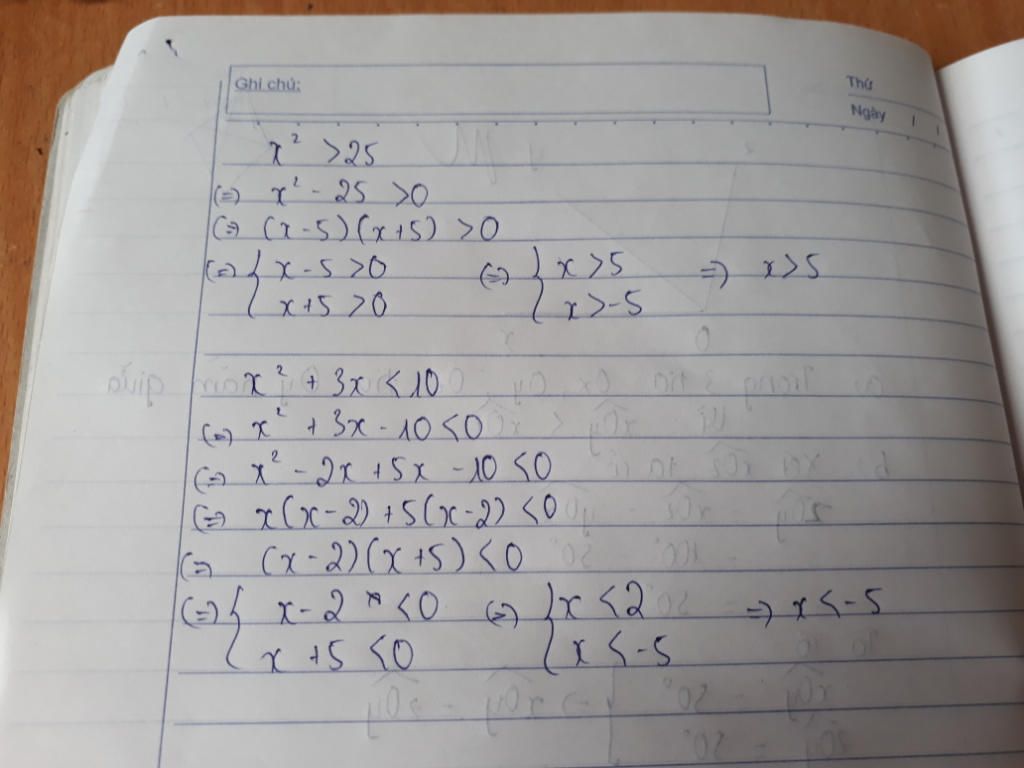 Ghi chú:
Thứ
Ngày
x² > 25
(=) x² - 25 > 0
(=) (x-5)(x+5) > 0
(=) { x-5 > 0 (=) { x > 5 =) x > 5
x+5 > 0 x > -5
x² + 3x < 10
(=) x² + 3x - 10 < 0
(=) x² - 2x + 5x - 10 < 0
(=) x(x-2) + 5(x-2) < 0
(=) (x-2)(x+5) < 0
(=) { x-2 < 0 (=) { x < 2 =) x < -5
x+5 < 0 x < -5